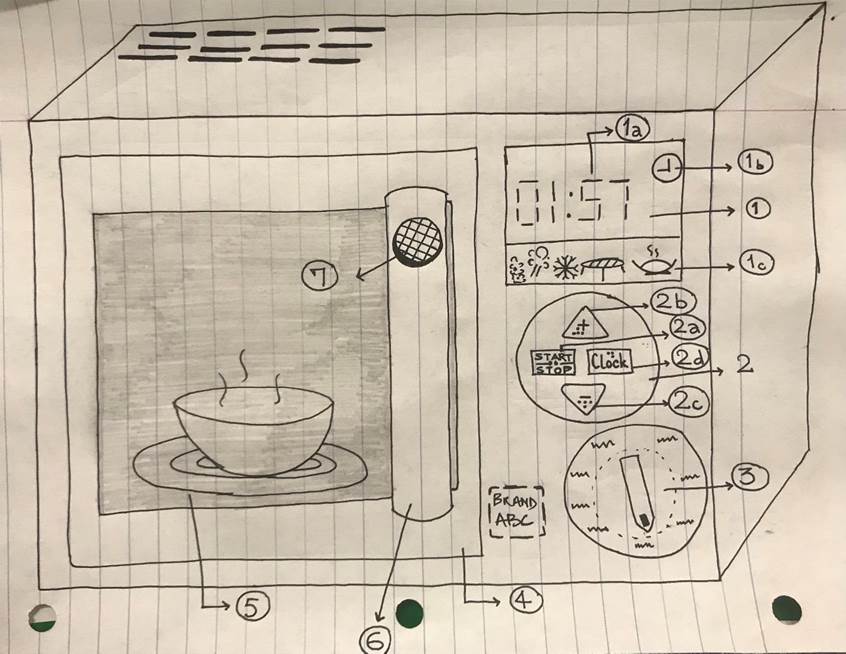 1a
1b
01:57
1
1c
7
2b
2a
START
STOP
Clock
2d
2
2c
3
BRAND
ABC
5
4
6